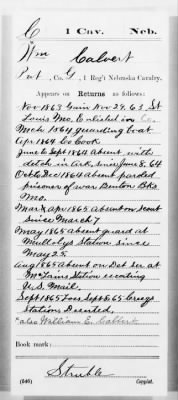 C 1 Cav. Neb.
Wm Calvert
Pvt, Co. G, 1 Reg't Nebraska Cavalry.
Appears on Returns as follows:
Nov 1863 Gain Nov 29. 63 St
Louis Mo. Enlisted in Co.
Mch 1864 guarding boat
Apr 1864 Co Cook
June to Sept 1864 absent with
detch in Ark. since June 8, 64
Oct to Dec 1864 absent paroled
prisoner of war Benton Bks
Mo.
Mar & Apr 1865 absent on Scout
since March 7
May 1865 absent guard at
Mullalys Station since
May 25.
Aug 1865 absent on Det Ser at
McLains Station escorting
U.S. Mail.
Sept 1865 Loss Sept 8. 65
Station, Deserted.
*also William E. Calbert
Book mark:
Struble
(646) Copyist.